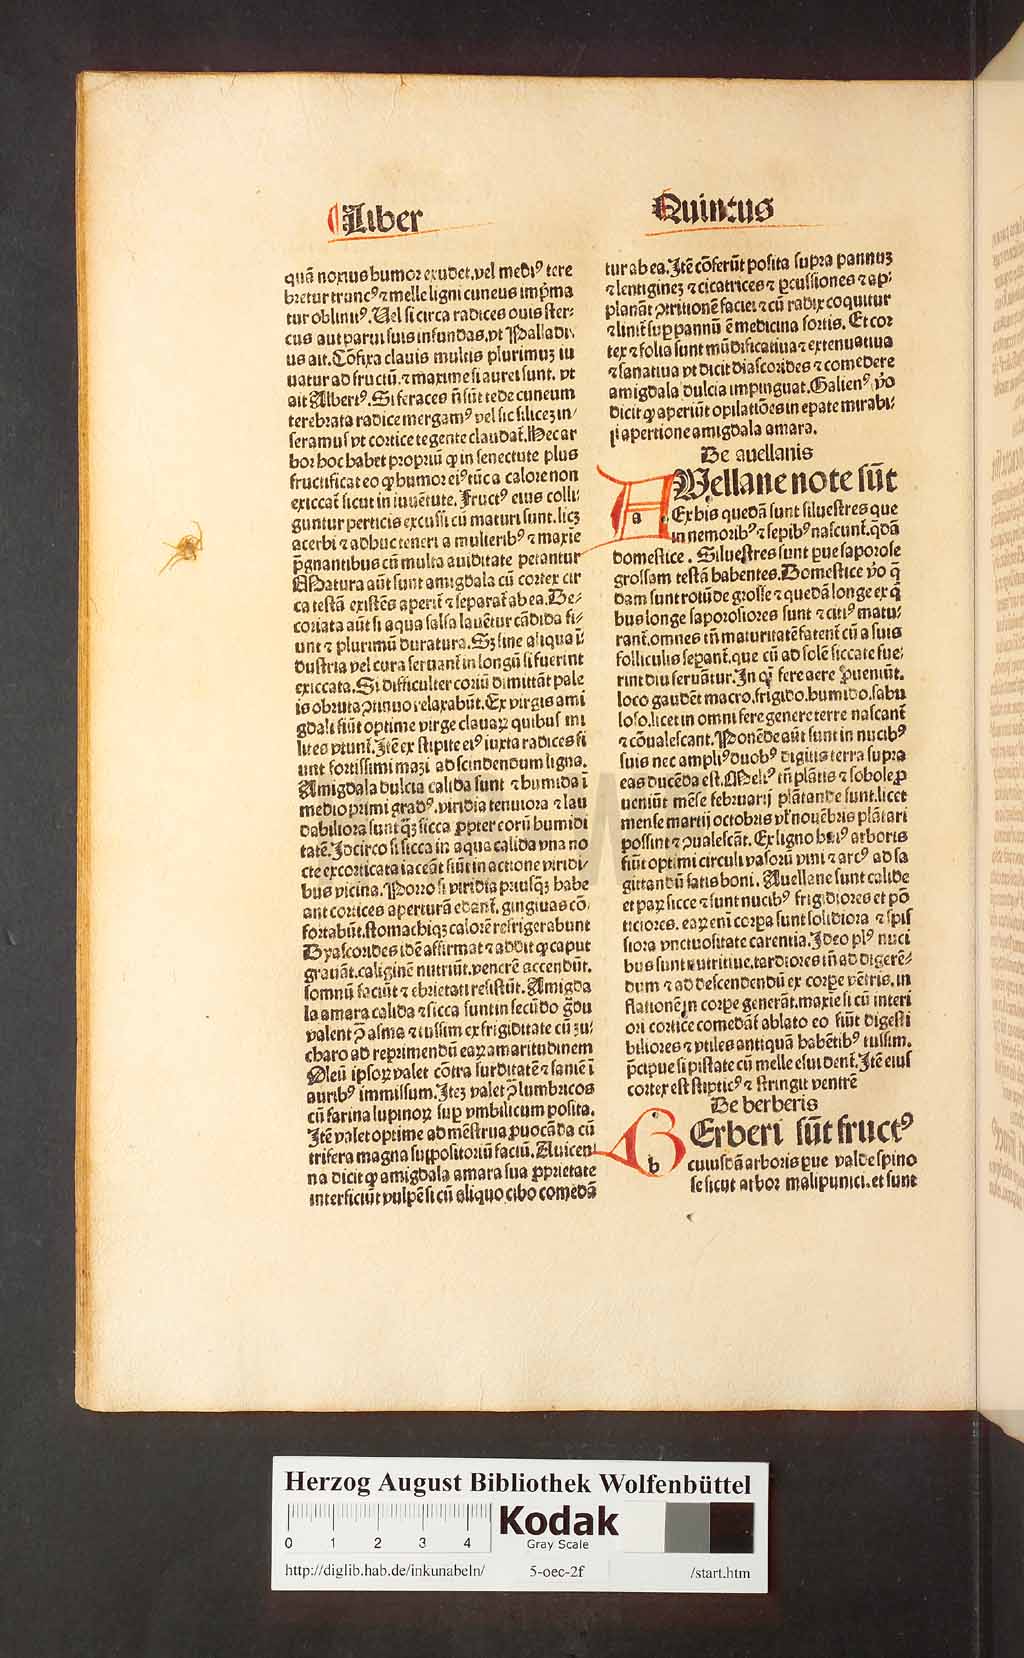 Liber
Quintus
quã noxius humor exudet. vel medi⁹ tere
bretur trunc⁹ ⁊ melle ligni cuneus imp̃ma
tur oblinit⁹. Uel si circa radices ouis ster⸗
cus aut parui suis infundas. vt Palladi⸗
us ait. Cõfixa clauis multis plurimuz iu
uatur ad fructũ. ⁊ maxime si aurei sunt. vt
ait Albert⁹. Si feraces nõ sĩt tede cuneum
terebrata radice mergam⁹ vel sic silicez in⸗
seramus vt cortice tegente claudat̃. Hec ar
bor hoc habet propriũ ꝙ in senectute plus
fructificat eo ꝙ humor ei⁹ tũc a calore non
exiccat̃ sicut in iuuẽtute. Fruct⁹ eius colli⸗
guntur perticis excussi cũ maturi sunt. licz
acerbi ⁊ adhuc teneri a mulierib⁹ ⁊ maxie
p̃gnantibus cũ multa auiditate petantur
Matura aũt sunt amigdala cũ cortex cir
ca testã existẽs aperit̃ ⁊ separat̃ ab ea. De⸗
coriata aũt si aqua salsa lauẽtur cãdida fi⸗
unt ⁊ plurimũ duratura. Sz sine aliqua ĩ⸗
dustria vel cura seruant̃ in longũ si fuerint
exiccata. Si difficulter coriũ dimittãt pale
is obruta ꝯtinuo relaxabũt. Ex virgis ami
gdali fiũt optime virge clauaꝝ quibus mi
lites vtunt̃. Itẽ ex stipite ei⁹ iuxta radices fi
unt fortissimi mazi ad scindendum ligna.
Amigdala dulcia calida sunt ⁊ humida ĩ
medio primi grad⁹. viridia tenuiora ⁊ lau
dabiliora sunt q̃z sicca ꝓpter eorũ humidi
tatẽ. Idcirco si sicca in aqua calida vna no
cte excorticata iaceãt fiũt in actione viridi⸗
bus vicina. Porro si viridia priusq̃z habe
ant cortices aperturã edant̃. gingiuas cõ⸗
fortabũt. stomachiqz calorẽ refrigerabunt
Dyascorides idẽ affirmat ⁊ addit ꝙ caput
grauãt. caliginẽ nutriũt. venerẽ accendũt.
somnũ faciũt ⁊ ebrietati resistũt. Amigda
la amara calida ⁊ sicca sunt in secũdo g̃du
valent ꝯ̃ asma ⁊ tussim ex frigiditate cũ zu⸗
charo ad reprimendũ eaꝝ amaritudinem
Oleũ ipsoꝝ valet cõtra surditatẽ ⁊ saniẽ ĩ
aurib⁹ immissum. Itez valet ꝯ̃ lumbricos
cũ farina lupinoꝝ sup̱ vmbilicum posita.
Itẽ valet optime ad mẽstrua ꝓuocãda cũ
trifera magna suppositoriũ faciũ. Auicen⸗
na dicit ꝙ amigdala amara sua ꝓprietate
interficiũt vulpẽ si cũ aliquo cibo comedã
tur ab ea. Itẽ cõferũt posita supra pannuz
⁊ lentiginez ⁊ cicatrices ⁊ ꝑcussiones ⁊ ap⸗
planãt ꝯtritionẽ faciei ⁊ cũ radix coquitur
⁊ linit̃ sup̱ pannũ ẽ medicina fortis. Et cor
tex ⁊ folia sunt mũdificatiua ⁊ extenuatiua
⁊ sanatiua vt dicit diascorides ⁊ comedere
amigdala dulcia impinguat. Galien⁹ ṽo
dicit ꝙ aperiũt opilatiões in epate mirabi⸗
li apertione amigdala amara.
De auellanis
AVellane note sũt
a
Ex his quedã sunt siluestres que
in nemorib⁹ ⁊ sepib⁹ nascunt̃. q̃dã
domestice. Siluestres sunt ꝑue saporose
grossam testã habentes. Domestice ṽo q̃
dam sunt rotũde grosse ⁊ quedã longe ex q̃
bus longe saporosiores sunt ⁊ citi⁹ matu⸗
rant̃. omnes tñ maturitatẽ fatent̃ cũ a suis
folliculis sepant̃. que cũ ad solẽ siccate fue⸗
rint diu seruãtur. In q̃ fere aere ꝓueniũt.
loco gaudẽt macro. frigido. humido. sabu
loso. licet in omni fere genere terre nascant̃
⁊ cõualescant. Ponẽde aũt sunt in nucib⁹
suis nec ampli⁹ duob⁹ digitis terra supra
eas ducẽda est. Meli⁹ tñ plãtis ⁊ sobole ꝓ
ueniũt mẽse februarij plãtande sunt. licet
mense martij octobris vl̃ nouẽbris plãtari
possint ⁊ ꝯualescãt. Ex ligno hui⁹ arboris
fiũt optimi circuli vasorũ vini ⁊ arc⁹ ad sa
gittandũ satis boni. Auellane sunt calide
et paꝝ sicce ⁊ sunt nucib⁹ frigidiores et põ
ticiores. eaꝝ em̃ corpa sunt solidiora ⁊ spis
siora vnctuositate carentia. Ideo pl⁹ nuci
bus sunt nutritiue. tardiores tñ ad digerẽ⸗
dum ⁊ ad descendendũ ex corpe vẽtris. in
flationẽ in corpe generãt. maxie si cũ interi
ori cortice comedãt̃ ablato eo fiũt digesti
biliores ⁊ vtiles antiquã habẽtib⁹ tussim.
p̃cipue si pistate cũ melle esui dent̃. Itẽ eius
cortex est stiptic⁹ ⁊ stringit ventrẽ
De berberis
BErberi sũt fruct⁹
b
cuiusdã arboris ꝑue valde spino
se sicut arbor malipunici. et sunt
Herzog August Bibliothek Wolfenbüttel
0 1 2 3 4
Kodak
Gray Scale
http://diglib.hab.de/inkunabeln/ 5-oec-2f /start.htm